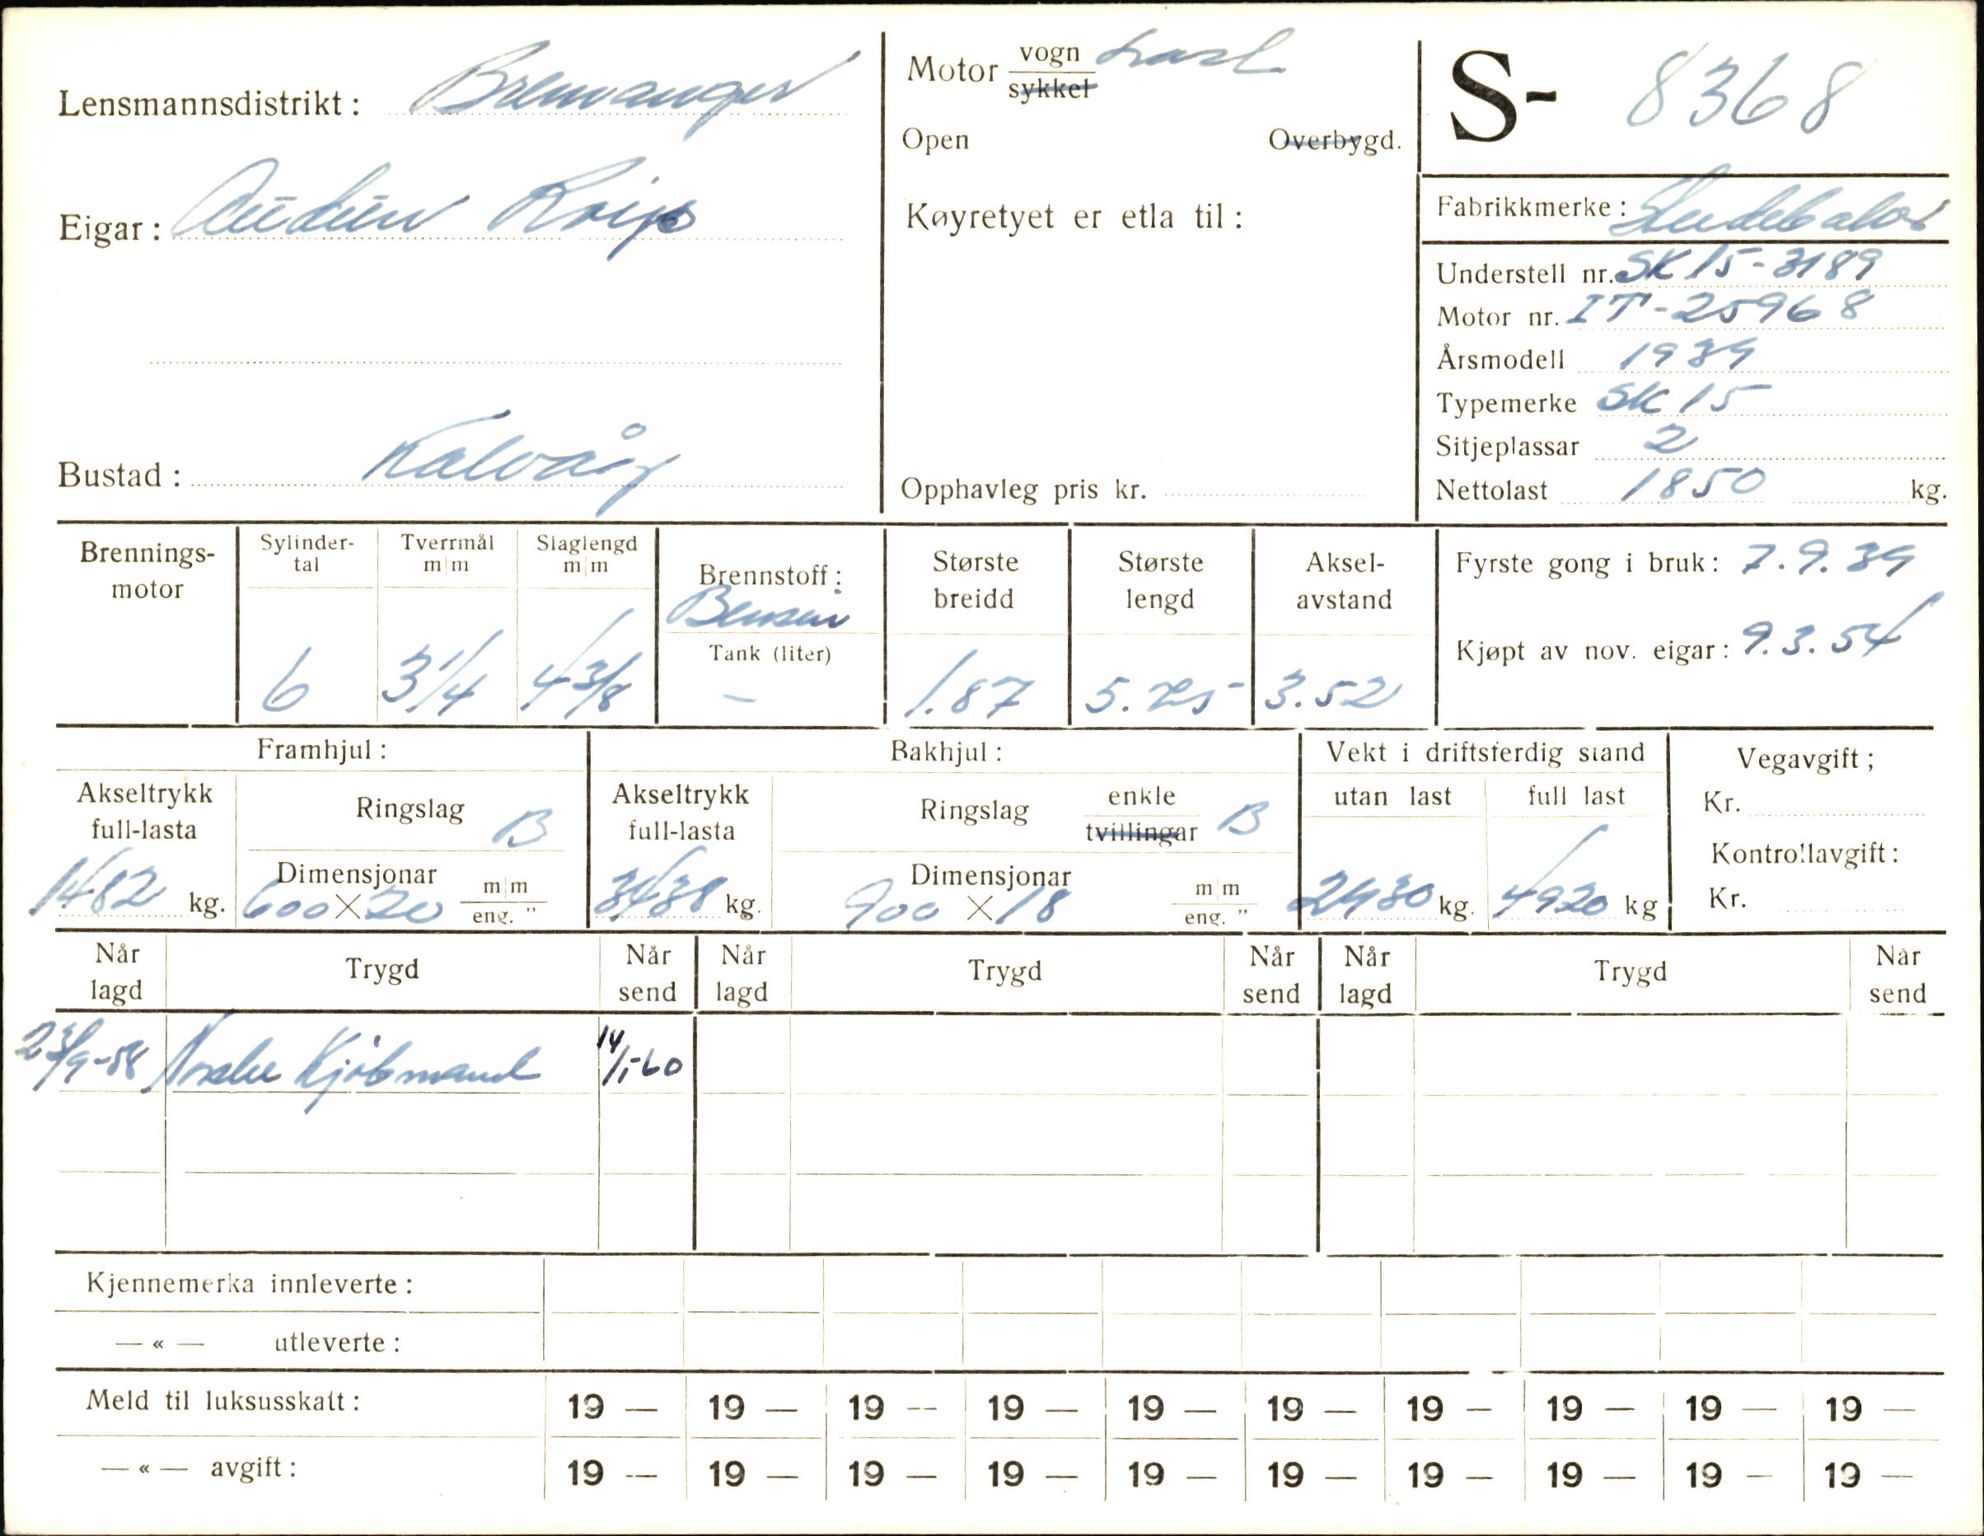 Lensmannsdistrikt: Bremanger
Eigar: Audun
Bustad: Kalvåg
Motor vogn last
sykkel
Open Overbygd.
Køyretyet er etla til:
Opphavleg pris kr.
S- 8368
Fabrikkmerke: Studebaker
Understell nr. SK 15-3189
Motor nr. IT-25968
Årsmodell 1939
Typemerke SK 15
Sitjeplassar 2
Nettolast 1850 kg.
Brennings-
motor
Sylinder-
tal
6
Tverrmål
m|m
3 1/4
Slaglengd
m|m
4 3/8
Brennstoff:
Bensin
Tank (liter)
–
Største
breidd
1.87
Største
lengd
5.25
Aksel-
avstand
3.52
Fyrste gong i bruk: 7.9.39
Kjøpt av nov. eigar: 9.3.54
Framhjul:
Akseltrykk
full-lasta
1482 kg.
Ringslag B
Dimensjonar
600 X 20 m|m
eng. "
Bakhjul:
Akseltrykk
full-lasta
3438 kg.
Ringslag enkle
tvillingar B
Dimensjonar
900 X 18 m|m
eng. "
Vekt i driftsferdig stand
utan last full last
2930 kg. 4920 kg
Vegavgift;
Kr.
Kontrollavgift:
Kr.
Når
lagd Trygd Når
send Når
lagd Trygd Når
send Når
lagd Trygd Når
send
23/9-58 Norske Kjøbmænd 14/1-60
Kjennemerka innleverte:
— « — utleverte:
Meld til luksusskatt: 19 — 19 — 19 — 19 — 19 — 19 — 19 — 19 — 19 — 19 —
— « — avgift: 19 — 19 — 19 — 19 — 19 — 19 — 19 — 19 — 19 — 19 —